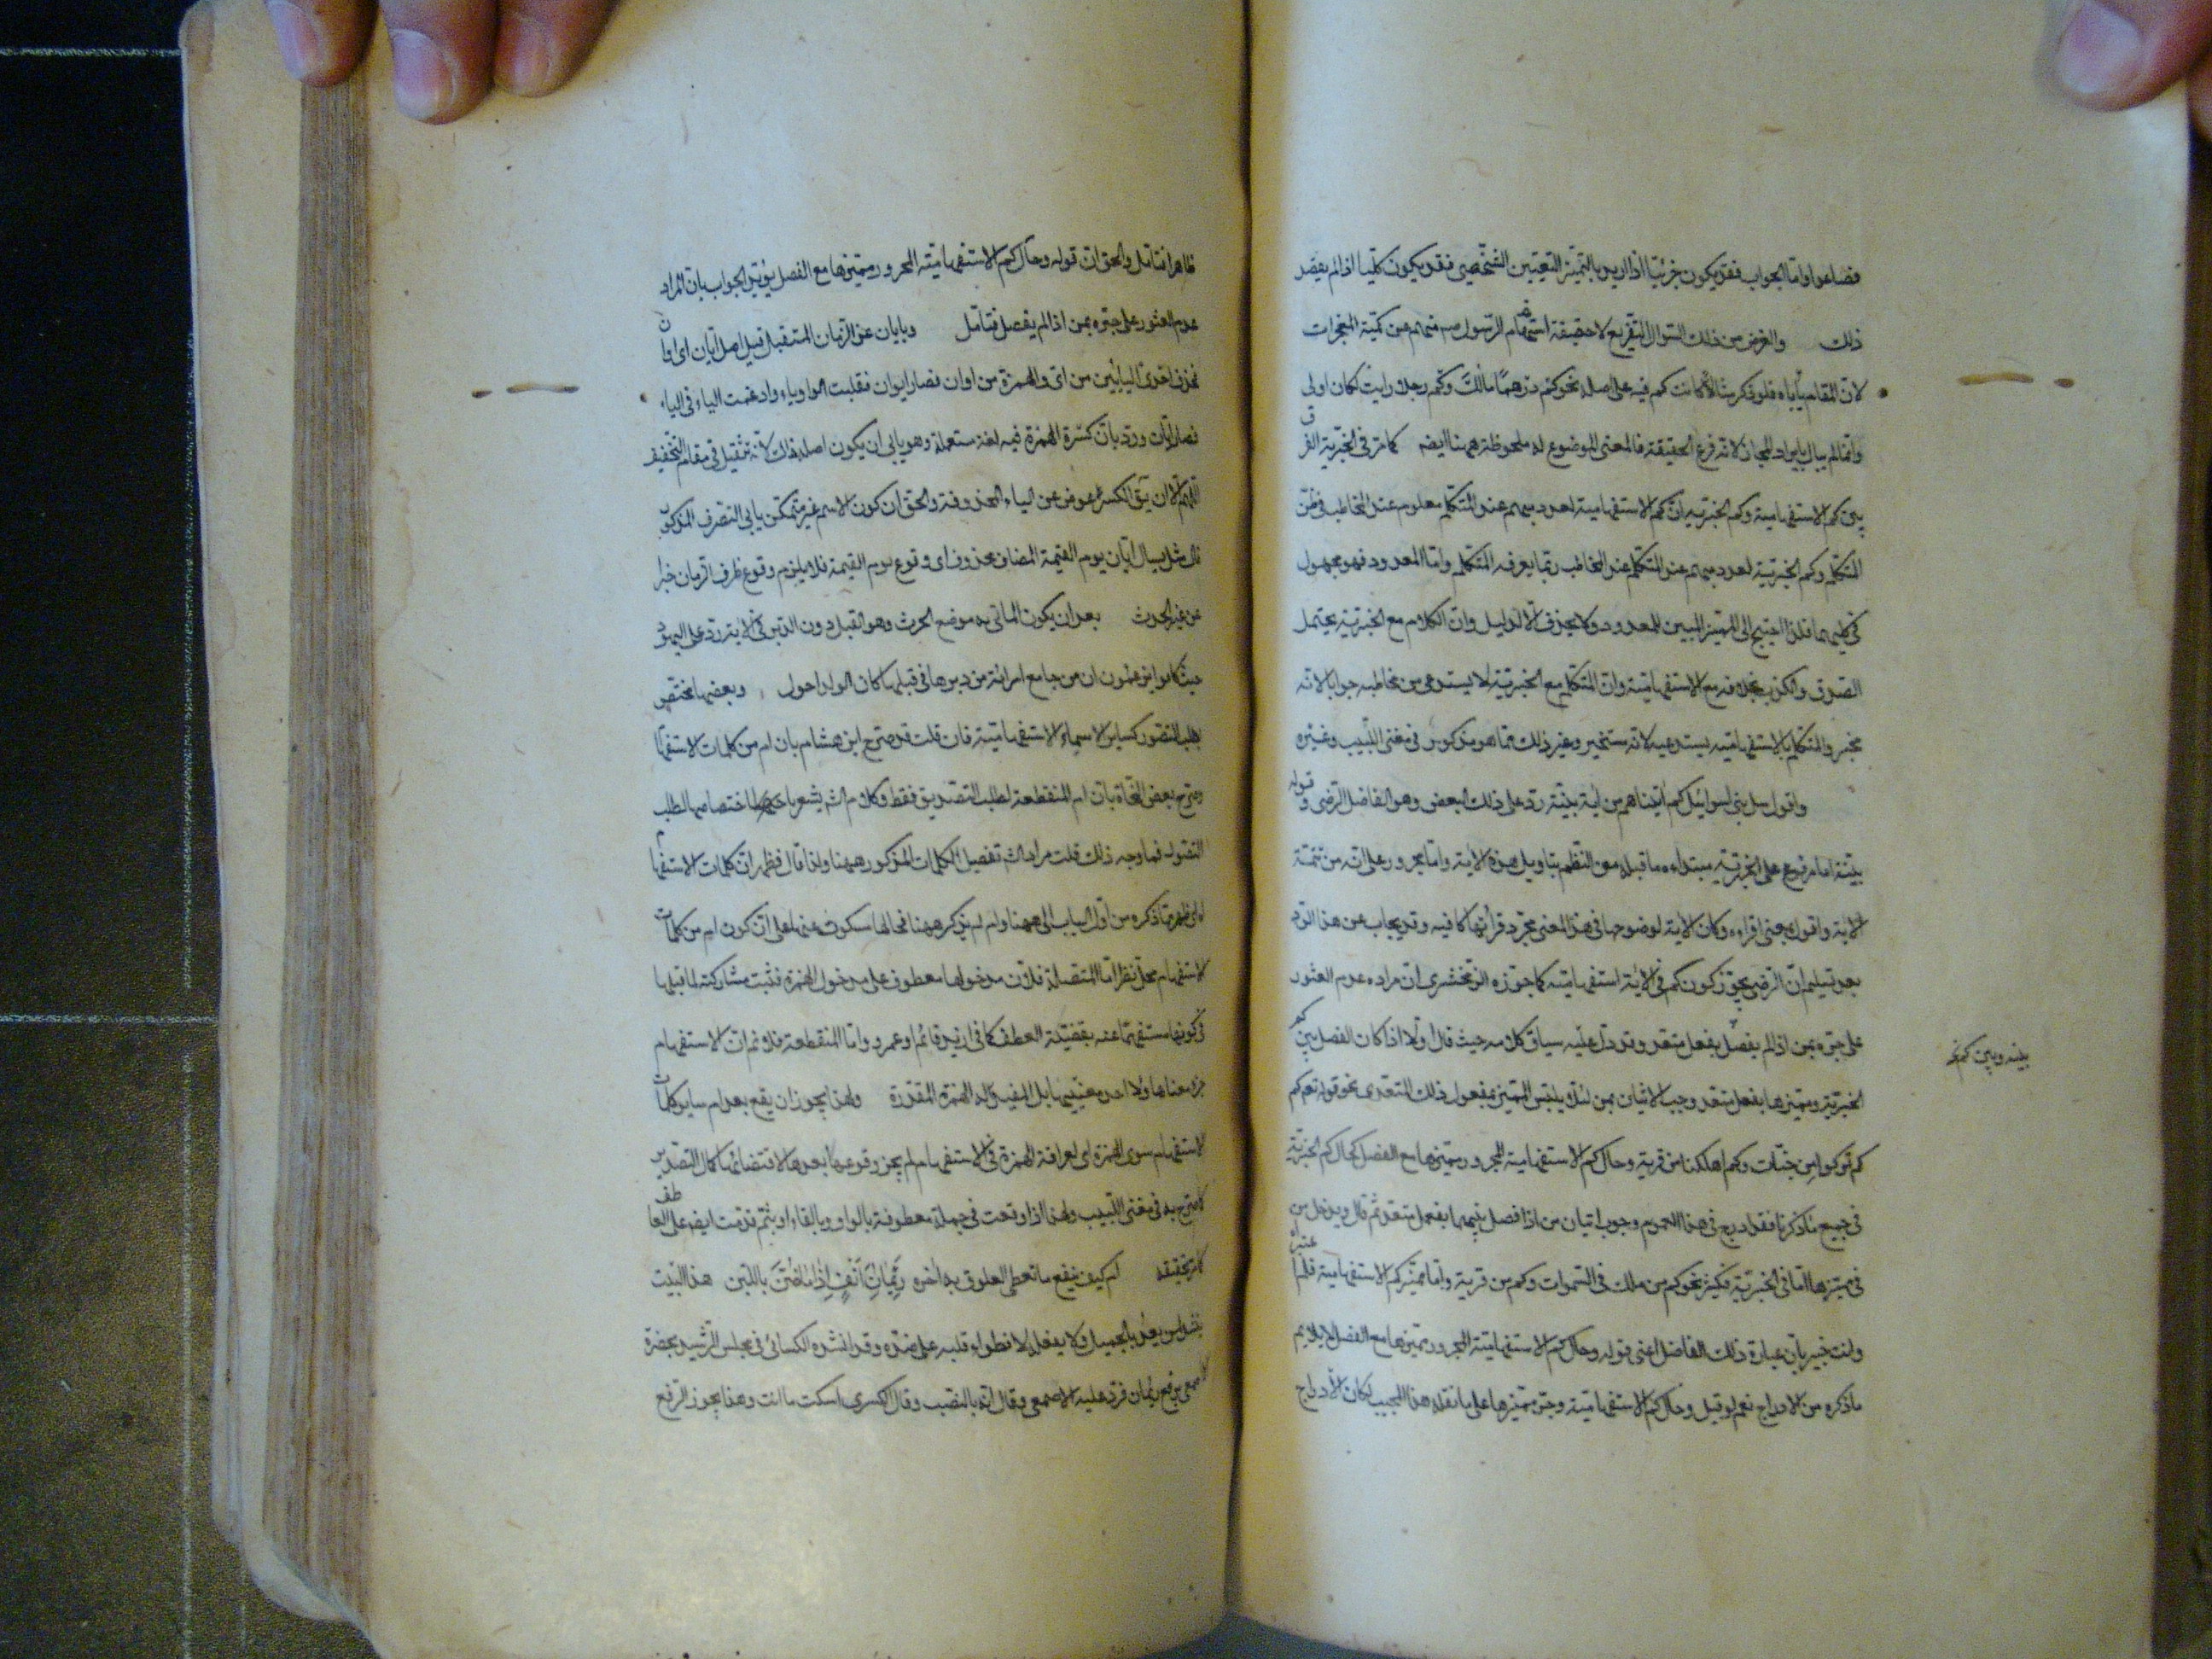 فصاعدا واما الجواب فقد يكون جزئيا اذا اريد بالتميز التعيين الشخصي فقد يكون كليا اذا لم يقصد
ذلك والغرض من ذلك السؤال التقريع لا حقيقة استفهام الرسول منهم عن كمية المعجزات
لان المقام ياباه فلو ذكر مثالا كانت كم فيه على اصله نحو كم درهما مالك وكم رجلا رايت لكان اولى
وانما لم يبال بايراد المجاز لانه فرع الحقيقة فالمعنى الموضوع له ملحوظة ههنا ايضه كما مر في الخبرية الفرق
بين كم الاستفهامية وكم الخبرية ان كم الاستفهامية لعدد مبهم عند المتكلم معلوم عند المخاطب في ظن
المتكلم وكم الخبرية لعدد مبهم عند المخاطب ربما يعرفه المتكلم واما المعدود فهو مجهول
في كليهما فلذا احتيج الى التميز المبين للمعدود ولا يحذف الا لدليل وان الكلام مع الخبرية يحتمل
الصدق والكذب بخلافه مع الاستفهامية وان المتكلم مع الخبرية لا يستدعي من مخاطبه جوابا لانه
مخبر والمتكلم بالاستفهامية يستدعيه لانه مستخبر وغير ذلك مما هو مذكور في مغنى اللبيب وغيره
واقول سل بنى اسرائيل كم اتيناهم من اية بينة رد على ذلك البعض وهو الفاضل الرضى وقوله
بينة اما مرفوع على الخبرية مبتداءه ما قبله من النظم بتاويل هذه الاية واما مجرور على انه من تتمة
الاية واقول بمعنى اقراء وكان الاية لوضوحها في هذا المعنى مجرد قرأتها كافيه وقد يجاب عن هذا الرد
بعد تسليم ان الرضى يجوز كون كم في الاية استفهامية كما جوزه الزمخشرى ان مراده عدم العثور
على جره بمن اذا لم يفصل بفعل متعد وقد دل عليه سياق كلامه حيث قال اولا اذا كان الفصل بين كم
بينه وبين كم نخ
الخبرية ومميزها بفعل متعد وجب الاتيان بمن لئلا يلتبس المميز بمفعول ذلك المتعدى نحو قوله تعه كم
كم تركوا من جنات وكم اهلكنا من قرية وحال كم الاستفهامية المجرور مميزها مع الفصل كحال كم الخبرية
في جميع ما ذكرنا فقد ادرج في هذا العموم وجوب اتيان من اذا فصل بينهما بفعل متعد ثم قال ويدخل من
في مميزها اما في الخبرية فكثير نحو كم من ملك في السموات وكم من قرية واما مميز كم الاستفهامية فلم
وانت خبير بان عبارة ذلك الفاضل اعنى قوله وحال كم الاستفهامية المجرور مميزها مع الفصل لا يلايم
ما ذكره من الادراج نعم لو قيل وحال كم الاستفهامية وجر مميزها على ما نقله هذا المجيب لكان الادراج
ظاهرا فتامل والحق ان قوله وحال كم الاستفهامية المجرور مميزها مع الفصل يؤيد الجواب بان المراد
عدم العثور على جره بمن اذا لم يفصل فتامل وبايان عن الزمان المستقبل قيل اصل ايان اى اوان
فحذف احدى اليائين من اى والهمزة من اوان فصار ايوان فقلبت الواو ياء وادغمت الياء في الياء
فصار ايان ورد بان كسرة الهمزة فيه لغة مستعملة وهو يابى ان يكون اصله ذلك لانه تثقيل في مقام التخفيف
اللهم الا ان يق الكسر عوض عن الياء المحذوفة والحق ان كون الاسم غير متمكن يابى التصرف المذكور
قال مثل يسال ايان يوم القيمة المضاف محذوف اى وقوع يوم القيمة فلا يلزم وقوع ظرف الزمان خبرا
عن غير الحدث بعد ان يكون الماتى به موضع الحرث وهو القبل دون الدبر في الاية رد على اليهود
حيث كانوا يزعمون ان من جامع امرائة من دبرها في قبلها كان الولد احول وبعضها مختص
بطلب التصور كساير الاسماء الاستفهامية فان قلت قد صرح ابن هشام بان ام من كلمات الاستفهام
وصرح بعض النحاة بان ام المنقطعة لطلب التصديق فقط وكلام الشه يشعر باختصاصها لطلب
التصور فما وجه ذلك قلت مراد الشه تفصيل الكلمات المذكورة ههنا ولذا قال فظهر ان كلمات الاستفهام
اى ظهر مما ذكره من اول الباب الى ههنا وام لم يذكر ههنا فحالها مسكوت عنها على ان كون ام من كلمات
الاستفهام محل نظر اما المتصلة فلان مدخولها معطوف على مدخول الهمزة فتثبت مشاركته لما قبلها
في كونها مستفهما عنه بقضية العطف كما في ازيد قائم او عمرو واما المنقطعة فلانه ان الاستفهام
جزء معناها ولا احد معنييها بل المفيد له الهمزة المقدرة ولهذا يجوز ان يقع بعد ام ساير كلمات
الاستفهام سوى الهمزة اى لعرافة الهمزة في الاستفهام لم يجز وقوعها بعدها لاقتضائها كمال التصدير
كما صرح به في مغنى اللبيب ولهذا اذا وقعت في جملة معطوفة بالواو وبالفاء او بثم قدمت ايضه على العاطف
كما تحقيقه ام كيف ينفع ما تعطى العلوق به اخره رئمان انف اذا ما ضن باللبن هذا البيت
مثل لمن يعد بالجميل ولا يفعله لانطواء قلبه على ضده وقد انشده الكسائى في مجلس الرشيد بحضرة
الاصمعى برفع رئمان فرد عليه الاصمعى وقال انه بالنصب وقال الكسرى اسكت ما انت وهذا يجوز الرفع